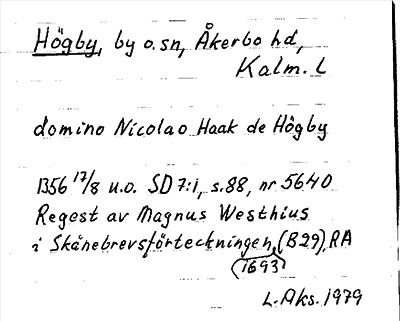 Högby, by o. sn, Åkerbo hd,
Kalm. L
domino Nicolao Haak de Högby
1356 17/8 u.o. SD 7:1, s. 88, nr 5640
Regest av Magnus Westhius
i Skånebrevsförteckningen, (B29), RA
(1693)
L. Aks. 1979